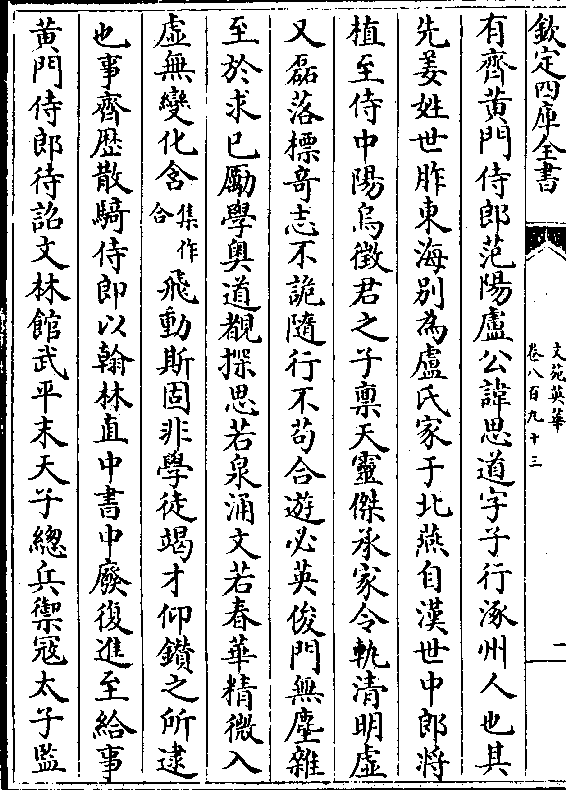 欽定四庫全書
文苑英華
卷八百九十三
二
有齊黄門侍郎范陽盧公諱思道字子行涿州人也其
先姜姓世胙東海别為盧氏家于北燕自漢世中郎將
植至侍中陽烏徵君之子禀天靈傑承家令軌清明虚
又磊落標竒志不詭隨行不苟合遊必英俊門無塵雜
至於求已勵學奥道覩探思若泉涌文若春華精微入
虚無變化含集作合飛動斯固非學徒竭才仰鑚之所逮
也事齊歴散騎侍郎以翰林直中書中廢復進至給事
黄門侍郎待詔文林館武平末天子總兵禦冦太子監